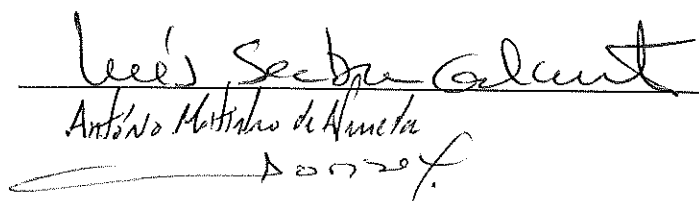 Inês Seabra Galante
António Martinho de Almeida